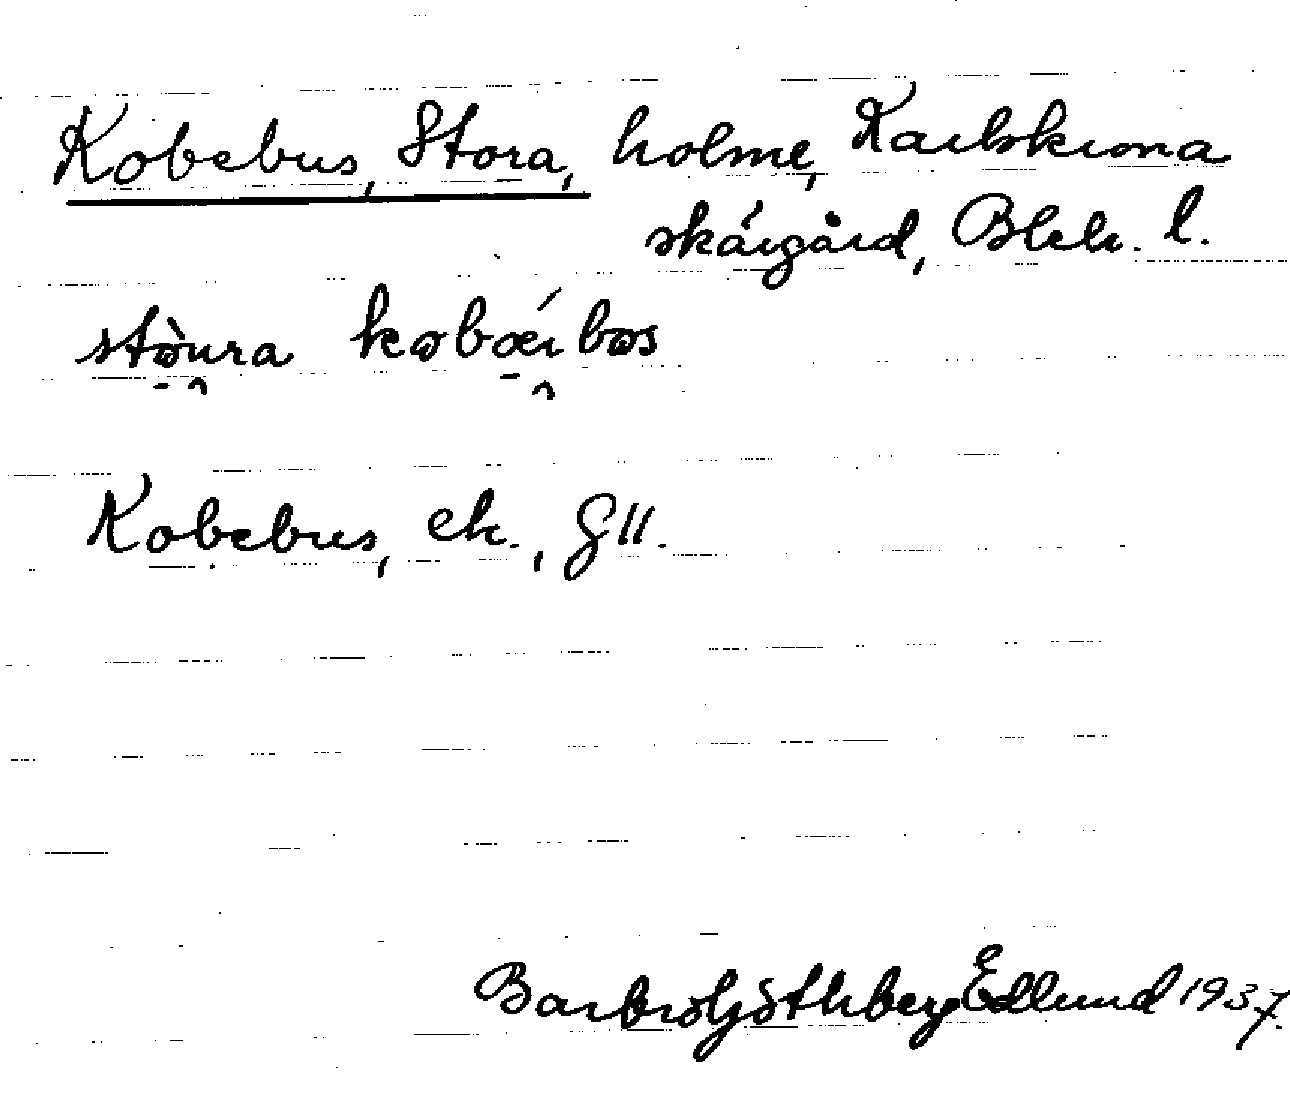 Kobebus, Stora, holme, Karlskrona
skärgård, Blek. l.
stòura kobǽibos
Kobebus, ek., GII.
Barbro Göthberg Edlund 1937.